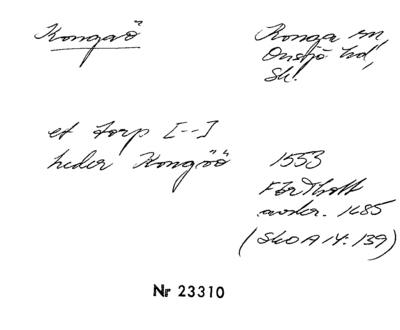 Kongaö
Konga sn,
Onsjö hd,
Sk.
et torp [--]
heder Kongöö
1553
avskr. 1685
(SkOA IV: 139)
Nr 23310